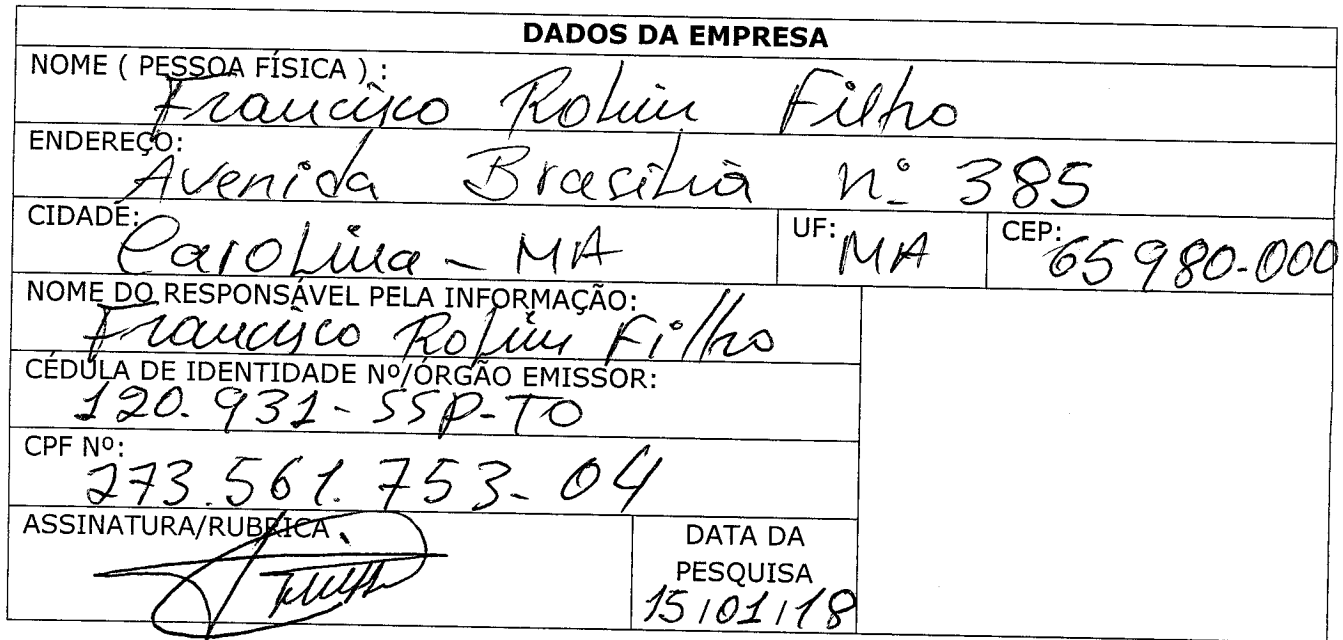 DADOS DA EMPRESA
NOME ( PESSOA FÍSICA ) :
Francisco Rolim Filho
ENDEREÇO:
Avenida Brasília nº 385
CIDADE: Carolina - MA UF: MA CEP: 65980-000
NOME DO RESPONSÁVEL PELA INFORMAÇÃO:
Francisco Rolim Filho
CÉDULA DE IDENTIDADE Nº/ÓRGÃO EMISSOR:
120.931-SSP-TO
CPF Nº:
273.561.753-04
ASSINATURA/RUBRICA
DATA DA
PESQUISA
15/01/18